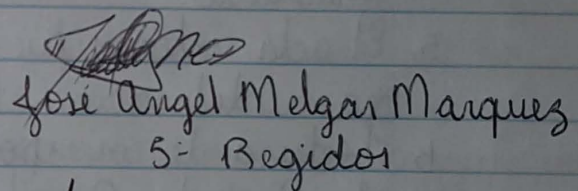 José Angel Melgar Marquez
5- Regidor